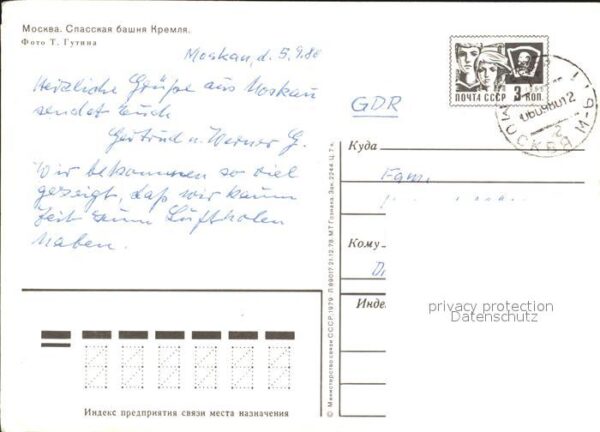 Москва. Спасская башня Кремля.
Фото Т. Гутина
Moskau, d. 5.9.80
Herzliche Grüße aus Moskau
sendet Euch
Gertrud u. Werner G.
Wir bekommen so viel
gezeigt, daß wir kaum
Zeit zum Luftholen
haben.
ПОЧТА СССР 3 КОП.
МОСКВА И-9
GDR
Куда
Fam.
Кому
Инде
privacy protection
Datenschutz
© Министерство связи СССР, 1979. Л 89017. 21.12.78. МТ Гознака. Зак. 2244. Ц. 7 к.
Индекс предприятия связи места назначения